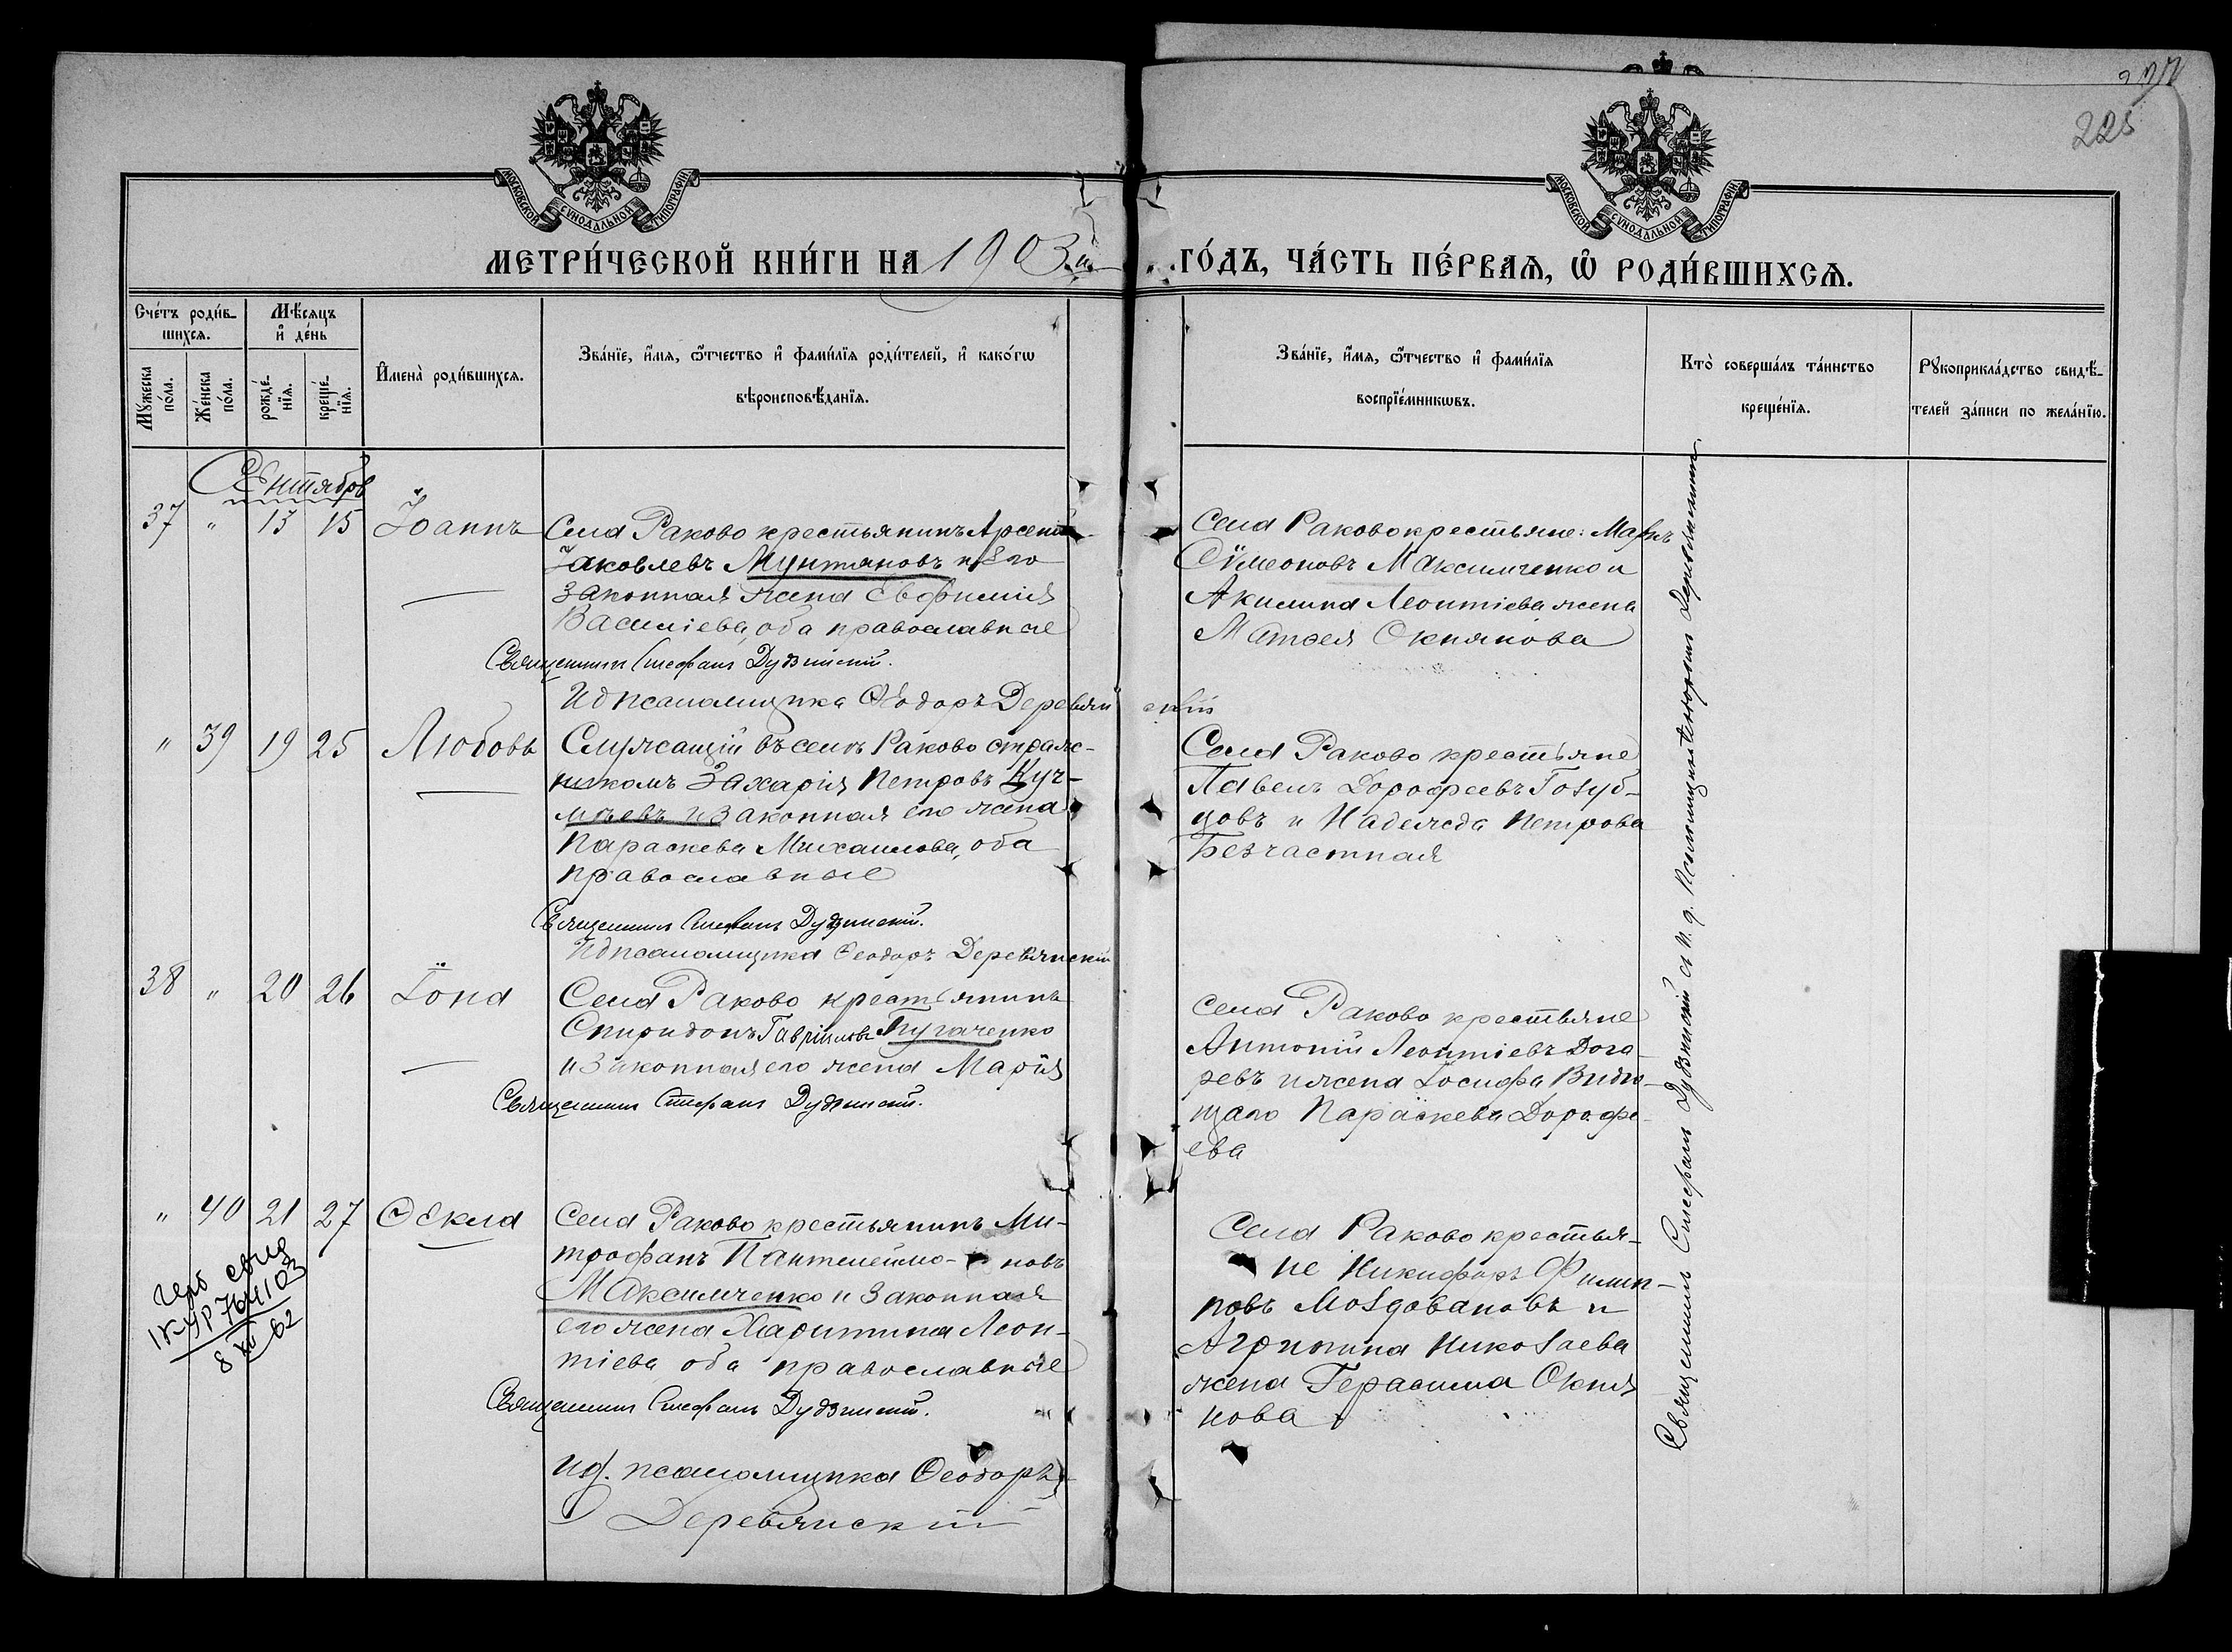 277
225
МОСКОВСКОЙ СѴНОДАЛЬНОЙ ТИПОГРАФІИ
МОСКОВСКОЙ СѴНОДАЛЬНОЙ ТИПОГРАФІИ
МЕТРИ́ЧЕСКОЙ КНИ́ГИ НА 1903й ГО́ДЪ, ЧА́СТЬ ПЕ́РВАѦ, Ѡ҆ РОДИ́ВШИХСѦ.
Сче́тъ роди́в-
шихсѧ.
Мѣ́сѧцъ
и҆ де́нь
Мꙋ́жеска
по́ла.
Же́нска
по́ла.
рожде́-
нїѧ.
креще́-
нїѧ.
И҆мена̀ роди́вшихсѧ.
Зва́нїе, и҆́мѧ, ѻ҆́тчество и҆ фамі́лїѧ роди́телей, и҆ како́гѡ
вѣроисповѣ́данїѧ.
Зва́нїе, и҆́мѧ, ѻ҆́тчество и҆ фамі́лїѧ
воспрїе́мникѡвъ.
Кто̀ соверша́лъ та́инство
креще́нїѧ.
Рꙋкоприкла́дство свидѣ́-
телей за́писи по жела́нїю.
Сентябрь
37 " 13 15 Іоаннъ
Села Раково крестьянинъ Арсеній
Іаковлевъ Мунтяновъ и его
законная жена Евфимія
Василіева, оба православные
Священникъ Стефанъ Дудзинскій.
Ид псаломщика Ѳеодоръ Деревянскій
Села Раково крестьяне: Маркъ
Сѵмеоновъ Максимченко и
Акилина Леонтіева жена
Матѳея Окнянова
" 39 19 25 Любовь
Служащій въ селѣ Раково страж-
никомъ Захарія Петровъ Куч-
мѣевъ и законная его жена
Параскева Михаилова, оба
православные
Священникъ Стефанъ Дудзинскій.
Ид псаломщика Ѳеодоръ Деревянскій
Села Раково крестьяне
Павелъ Дорофеевъ Голуб-
цовъ и Надежда Петрова
Безчастная
38 " 20 26 Іона
Села Раково крестьянинъ
Спиридонъ Гавріиловъ Пугаченко
и законная его жена Марія
Священникъ Стефанъ Дудзинскій.
Села Раково крестьяне
Антоній Леонтіевъ Дога-
ревъ и жена Іосифа Видю-
щаго Параскева Дорофе-
ева
" 40 21 27 Ѳекла
Села Раково крестьянинъ Ми-
трофанъ Пантелеймо- новъ
Максимченко и законная
его жена Харитина Леон-
тіева, оба православные
Священникъ Стефанъ Дудзинскій.
ид. псаломщика Ѳеодоръ
Деревянскій
Села Раково крестья-
не Никифоръ Филип-
повъ Молдовановъ и
Агрипина Николаева
жена Герасима Окня
нова
764103
8 XII 62
Священникъ Стефанъ Дудзинскій съ и. д. Псаломщика Ѳеодоромъ Деревянскимъ